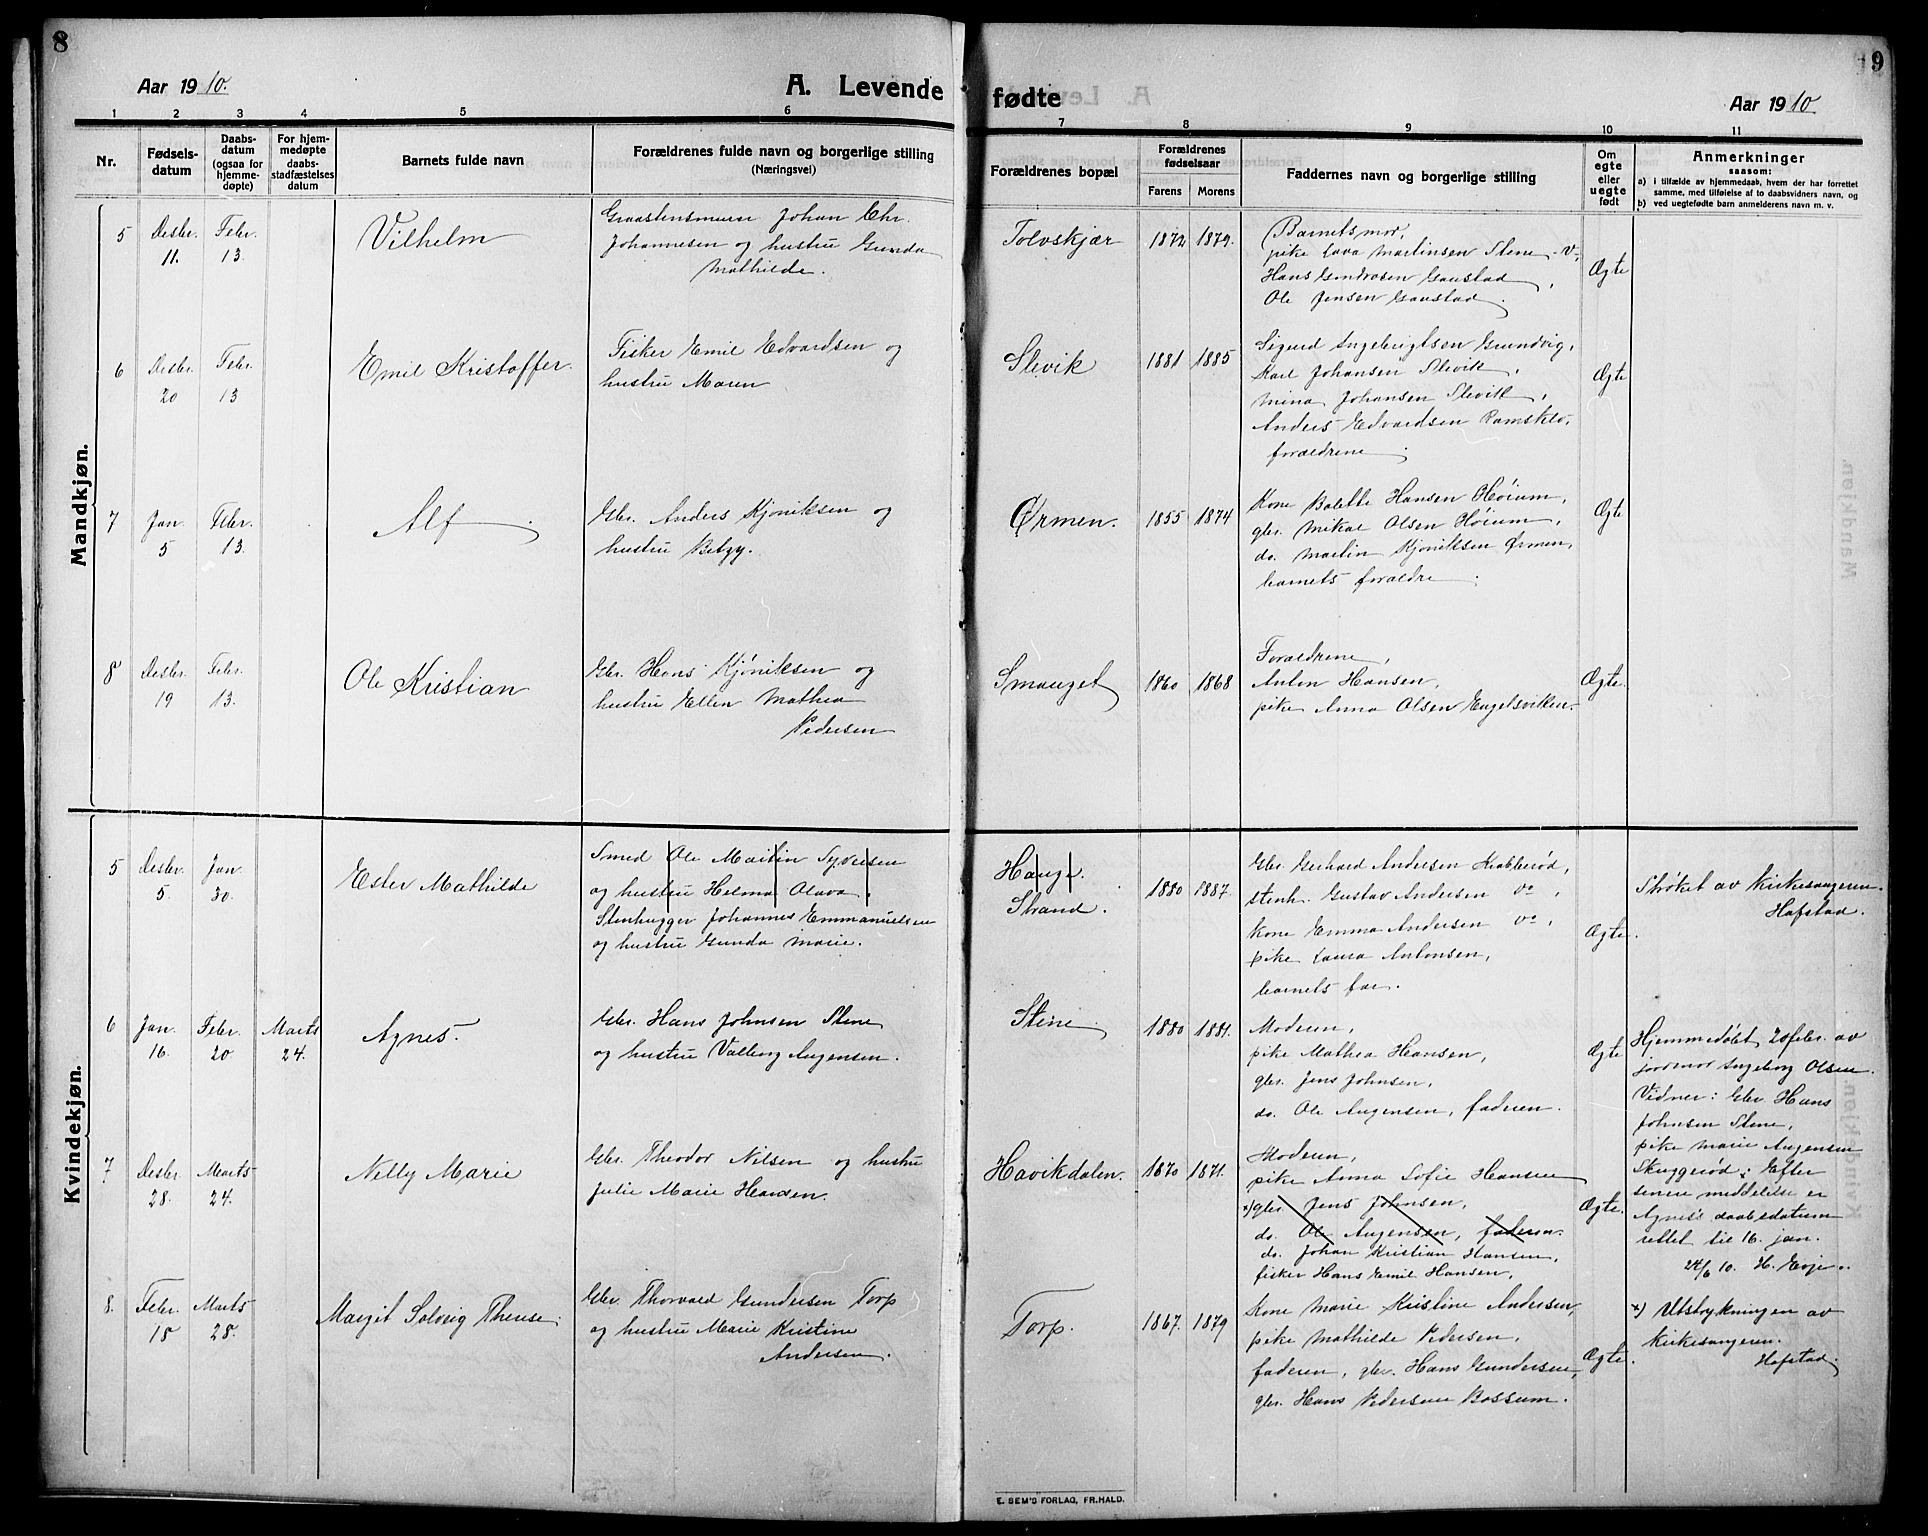 8
Aar 1910.
A. Levende
1 2 3 4 5 6
Nr.
Fødsels-
datum
Daabs-
datum
(ogsaa for
hjemme-
døpte)
For hjem-
medøpte
daabs-
stadfæstelses
datum
Barnets fulde navn
Forældrenes fulde navn og borgerlige stilling
(Næringsvei)
Mandkjøn.
5 Desbr. 11. Febr. 13 Vilhelm
Johan Chr.
Johannesen og hustru Gunda
Mathilde.
6 Desbr. 20 Febr. 13 Emil Kristoffer.
Fisker Emil Edvardsen og
hustru Maren
7 Jan. 5 Febr. 13. Alf.
Gbr. Anders Kjöniksen og
hustru Betzy.
8 Desbr. 19 Febr. 13. Ole Kristian
Gbr. Hans Kjöniksen og
hustru Ellen Mathea
Pedersen
Kvindekjøn.
5 Desbr. 5. Jan. 30. Ester Mathilde
Smed Ole Martin Syversen
og hustru Helma Olava.
Stenhugger Johannes Emmanuelsen
og hustru Gunda Marie.
6 Jan. 16. Febr. 20 Marts 24. Agnes.
Gbr. Hans Johnsen Stene
og hustru Valborg Augensen.
7 Desbr. 28. Marts 24. Nelly Marie
Gbr. Theodor Nilsen og hustru
Julie Marie Hansen.
8. Febr. 15 Marts 28. Margit Solveig Therese.
Gbr. Thorvald Gundersen Torp
og hustru Marie Kristine
Andersen.
9
fødte
Aar 1910
7 8 9 10 11
Forældrenes bopæl
Forældrenes
fødselsaar
Farens Morens
Faddernes navn og borgerlige stilling
Om
egte
eller
uegte
født
Anmerkninger
saasom:
a) i tilfælde av hjemmedaab, hvem der har forrettet
samme, med tilføielse af to daabsvidners navn, og
b) ved uegtefødt barn anmelderens navn m. v.
Tolvskjær 1872 1879. Ægte
Barnets mor,
pike Martinsen Stene
Hans Gaustad,
Ole Jensen Gaustad.
Slevik 1881 1885 Ægte
Sigurd Ingebrigtsen Grundvig,
Karl Johansen Slevik,
Mina Johansen Slevik,
Anders Edvardsen Ramsklo,
forældrene.
Ørmen. 1855 1874 Ægte
Kone Bolette Hansen Höium,
gbr. Mikal Olsen Höium,
do. Martin Kjöniksen Ørmen,
barnets forældre.
Smauget 1860 1868 Ægte.
Forældrene,
Anton Hansen,
pike Anna Olsen Engelsviken.
Hauge.
Strand. 1880 1887. Ægte.
Gbr. Gerhard Andersen Krabberød,
stenh. Gustav Andersen do,
kone Emma Andersen do,
pike Laura Antonsen,
barnets far.
Strøket av kirkesangeren.
Hafstad.
Stene. 1880 1881. Ægte
Moderen,
pike Mathea Hansen,
gbr. Jens Johnsen,
do. Ole Augensen, faderen.
Hjemmedøbt 20 febr. av
jordmor Ingeborg Olsen.
Vidner: Gbr. Hans
Johnsen Stene,
pike Marie Augensen
Skuggerød: Efter
senere meddelelse er
Agnes's daabsdatum
rettet til 16. jan.
24/6 10. H. Evje.
Havikdalen. 1870 1871. Ægte.
Moderen,
pike Anna Sofie Hansen
x) gbr. Jens Johnsen,
do. Ole Augensen, faderen.
do. Johan Kristian Hansen,
fisker Hans Emil Hansen,
Torp. 1867. 1879 Ægte.
Kone Marie Kristine Andersen,
pike Mathilde Pedersen,
faderen, gbr. Hans Gundersen,
gbr. Hans Pedersen Bossum.
x) Utstrykningen av
kirkesangeren.
Hafstad.
E. SEM'S FORLAG, FR.HALD.